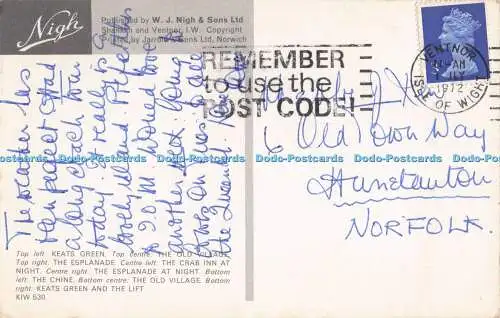 Nigh
Published by W. J. Nigh & Sons Ltd
Shanklin and Ventnor, I.W. Copyright
Printed by Jarrold & Sons Ltd, Norwich
REMEMBER
to use the
POST CODE!
VENTNOR
AM
1972
ISLE OF WIGHT
The weather has
been perfect & had
a long coach tour
today. It really is a
lovely island.
to 20 M. Would love
another week. Going
over on
the
6 Old Town Way
Hunstanton
NORFOLK.
Dodo-Postcards Dodo-Postcards Dodo-Postcards Dodo-Postcards Dodo-Postcards
Top left KEATS GREEN, Top centre: THE OLD VILLAGE.
Top right: THE ESPLANADE. Centre left: THE CRAB INN AT
NIGHT. Centre right: THE ESPLANADE AT NIGHT. Bottom
left: THE CHINE. Bottom centre: THE OLD VILLAGE. Bottom
right: KEATS GREEN AND THE LIFT
KIW 530